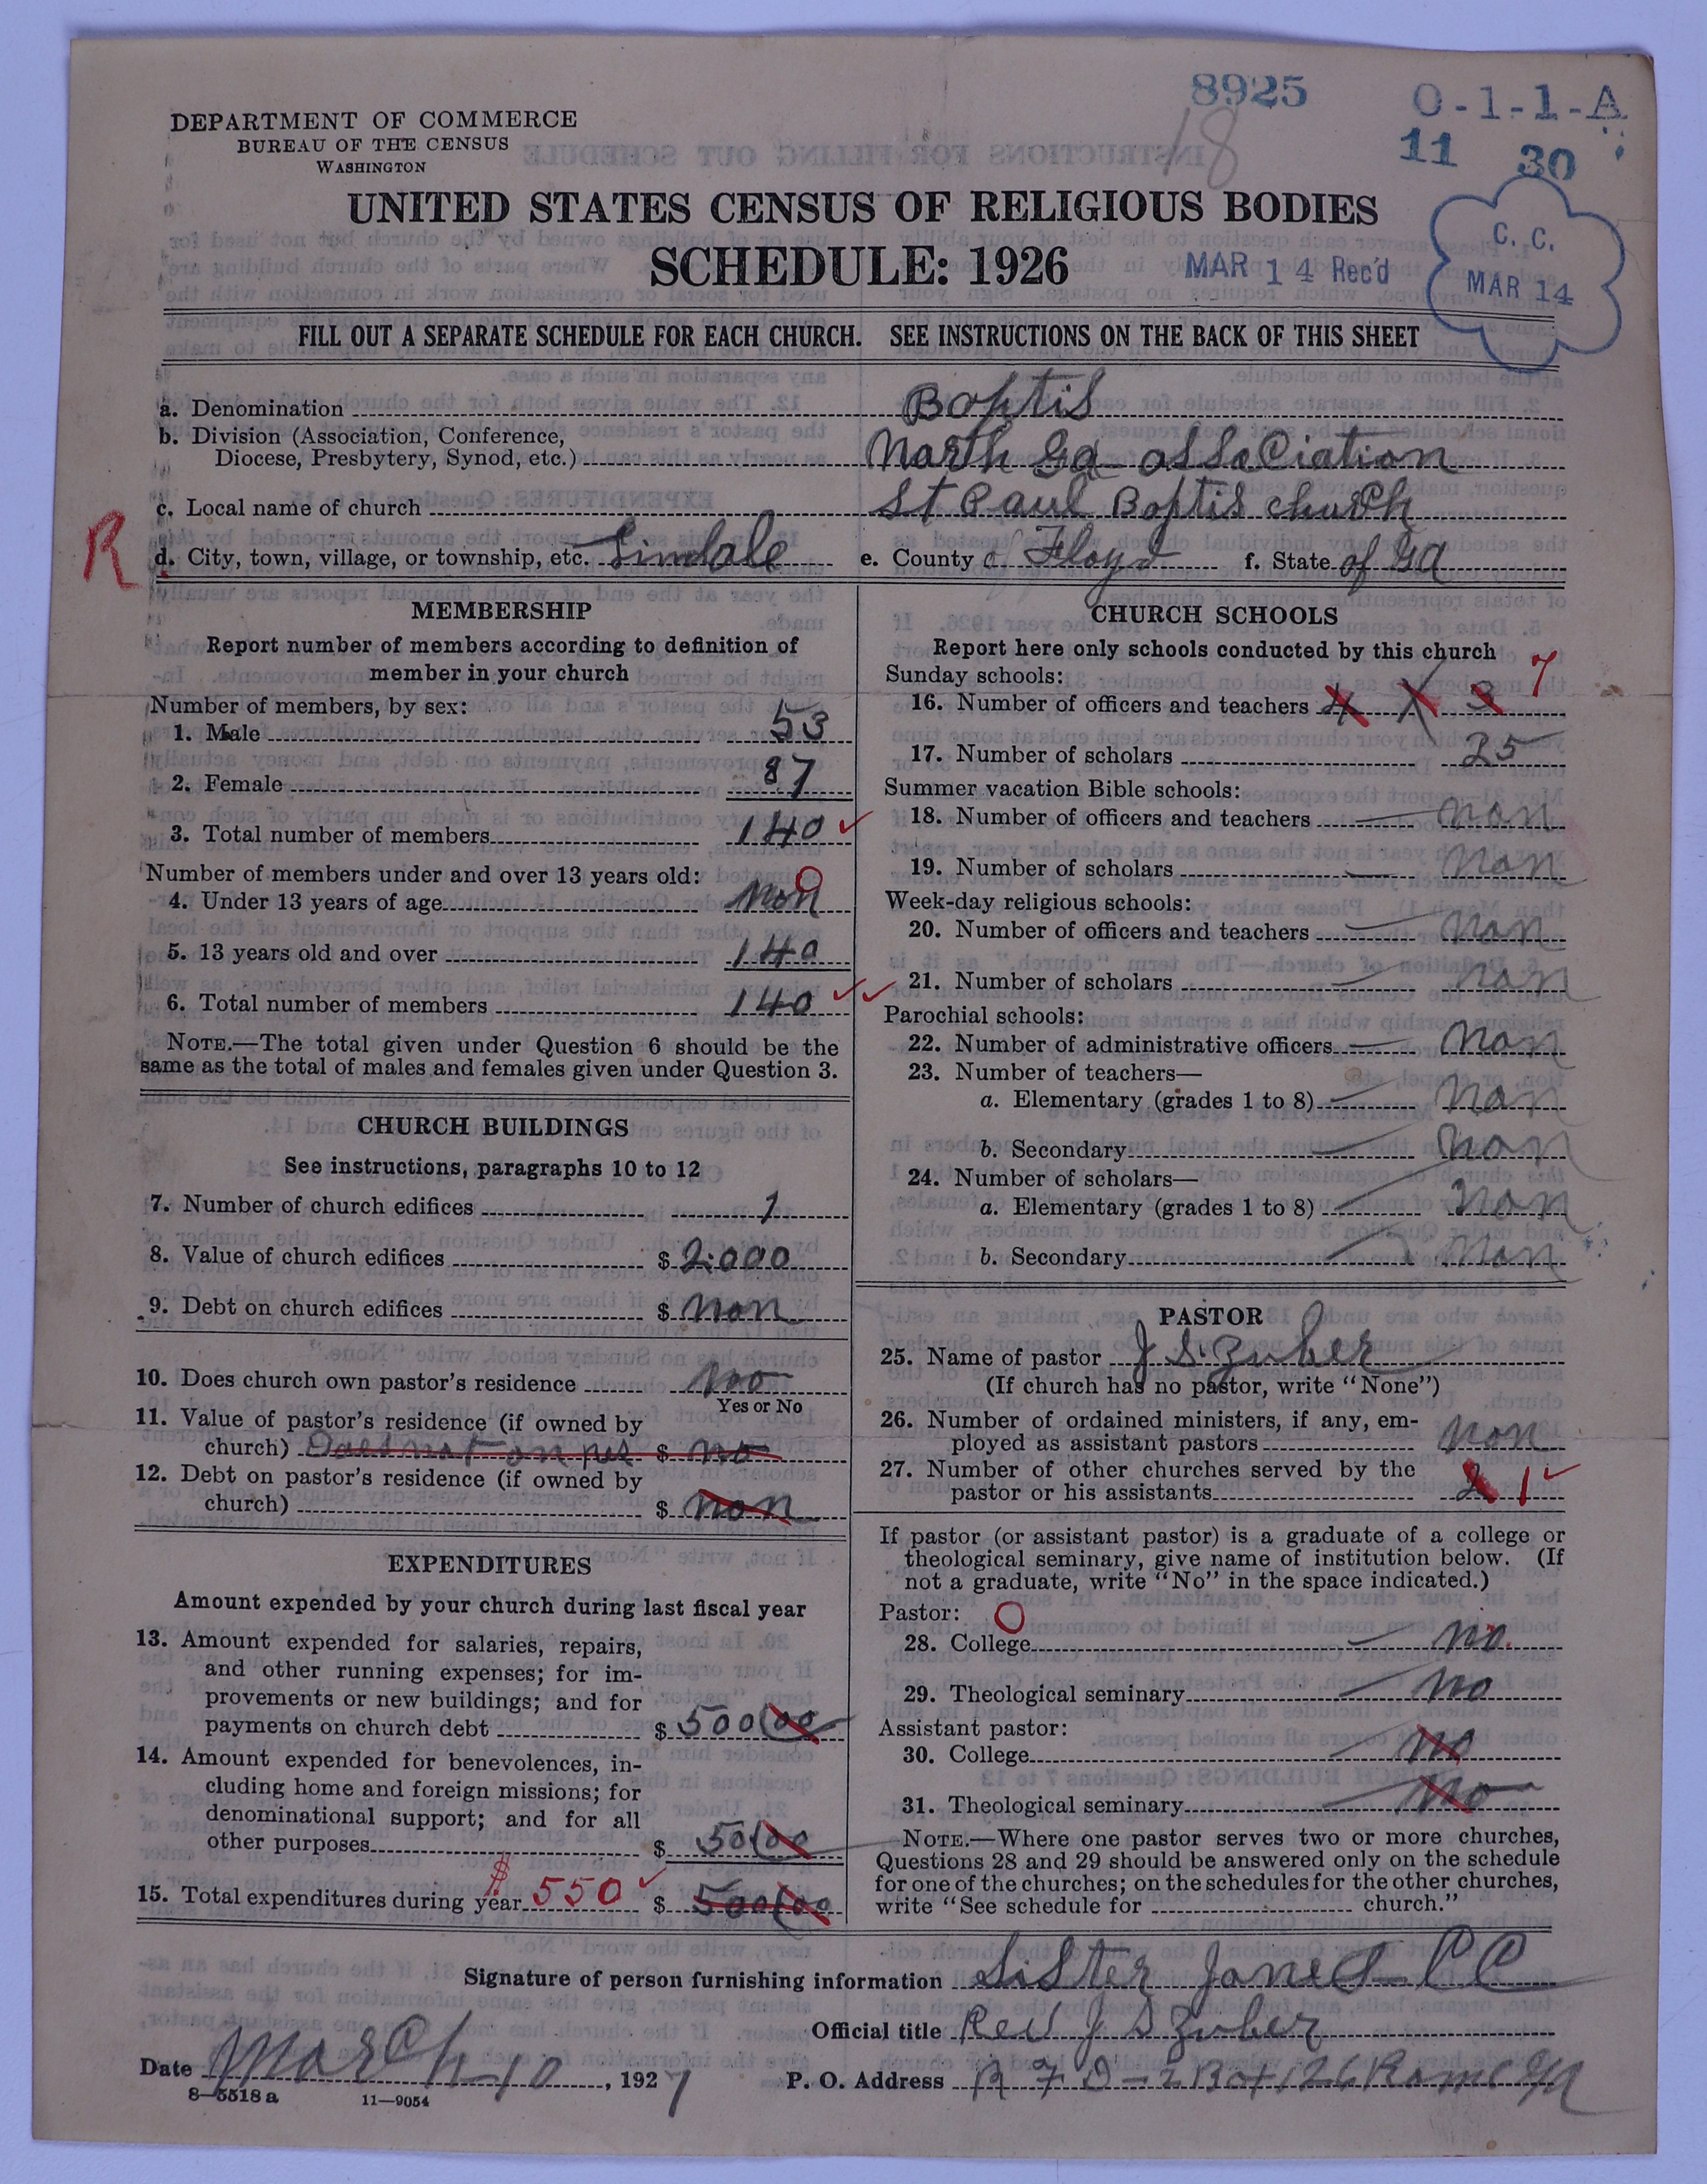 8925
O-1-1-A
18
11 30
DEPARTMENT OF COMMERCE
BUREAU OF THE CENSUS
WASHINGTON
UNITED STATES CENSUS OF RELIGIOUS BODIES
SCHEDULE: 1926
MAR 14 Rec'd
C. C.
MAR 14
FILL OUT A SEPARATE SCHEDULE FOR EACH CHURCH. SEE INSTRUCTIONS ON THE BACK OF THIS SHEET
a. Denomination Boptis
b. Division (Association, Conference,
Diocese, Presbytery, Synod, etc.) North Ga association
c. Local name of church St Paul Boptis church
R
d. City, town, village, or township, etc. Lindale e. County of Floyd f. State of Ga
MEMBERSHIP
Report number of members according to definition of
member in your church
Number of members, by sex:
1. Male 53
2. Female 87
3. Total number of members 140
Number of members under and over 13 years old:
4. Under 13 years of age non 0
5. 13 years old and over 140
6. Total number of members 140
NOTE.—The total given under Question 6 should be the
same as the total of males and females given under Question 3.
CHURCH BUILDINGS
See instructions, paragraphs 10 to 12
7. Number of church edifices 1
8. Value of church edifices $ 2.000
9. Debt on church edifices $ non
10. Does church own pastor's residence no
Yes or No
11. Value of pastor's residence (if owned by
church) Does not on $ no
12. Debt on pastor's residence (if owned by
church) $ non
EXPENDITURES
Amount expended by your church during last fiscal year
13. Amount expended for salaries, repairs,
and other running expenses; for im-
provements or new buildings; and for
payments on church debt $ 500 00
14. Amount expended for benevolences, in-
cluding home and foreign missions; for
denominational support; and for all
other purposes $ 50 00
15. Total expenditures during year $ 550 $ 500 00
CHURCH SCHOOLS
Report here only schools conducted by this church
Sunday schools:
16. Number of officers and teachers 4 3 7
17. Number of scholars 25
Summer vacation Bible schools:
18. Number of officers and teachers non
19. Number of scholars non
Week-day religious schools:
20. Number of officers and teachers non
21. Number of scholars non
Parochial schools:
22. Number of administrative officers non
23. Number of teachers—
a. Elementary (grades 1 to 8) non
b. Secondary non
24. Number of scholars—
a. Elementary (grades 1 to 8) non
b. Secondary non
PASTOR
25. Name of pastor J S. Zuber
(If church has no pastor, write "None")
26. Number of ordained ministers, if any, em-
ployed as assistant pastors non
27. Number of other churches served by the
pastor or his assistants 2 1
If pastor (or assistant pastor) is a graduate of a college or
theological seminary, give name of institution below. (If
not a graduate, write "No" in the space indicated.)
Pastor: O
28. College no.
29. Theological seminary no
Assistant pastor:
30. College no
31. Theological seminary no
NOTE.—Where one pastor serves two or more churches,
Questions 28 and 29 should be answered only on the schedule
for one of the churches; on the schedules for the other churches,
write "See schedule for church."
Signature of person furnishing information Sister Jones CC
Official title Rev J S Zuber
Date March 10, 1927 P. O. Address R F D-2 Box 126 Rome Ga
8—5518 a 11—9054